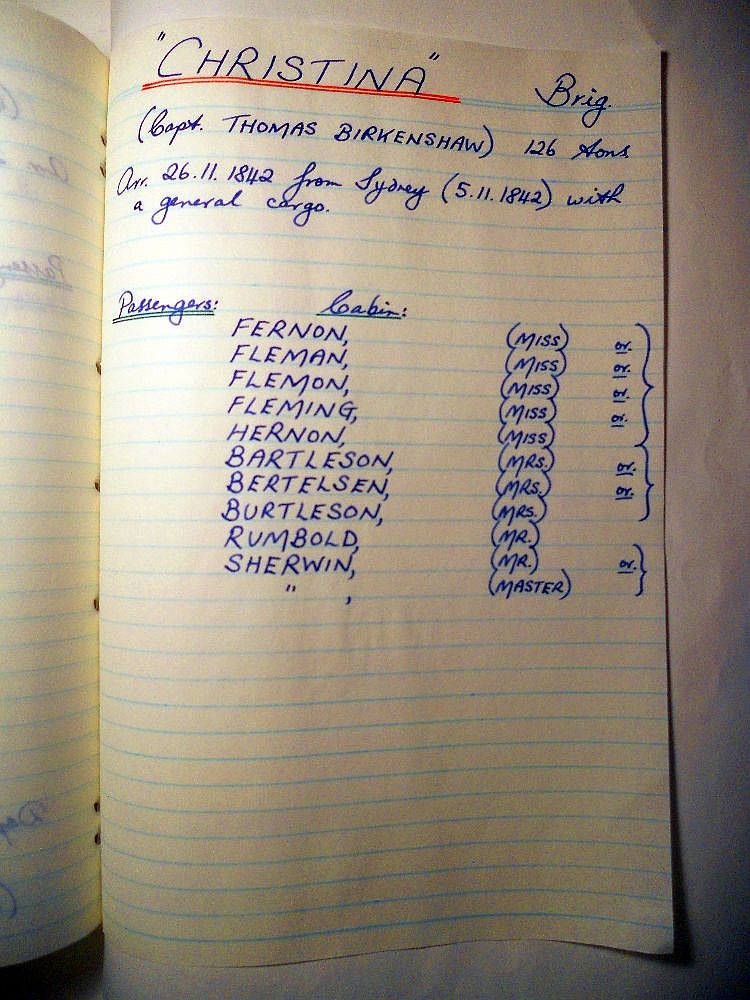 "CHRISTINA" Brig.
(Capt. THOMAS BIRKENSHAW) 126 tons
Arr. 26.11.1842 from Sydney (5.11.1842) with
a general cargo.
Passengers: Cabin:
FERNON, (MISS) or.
FLEMAN, (MISS) or.
FLEMON, (MISS) or.
FLEMING, (MISS) or.
HERNON, (MISS)
BARTLESON, (MRS.) or.
BERTELSEN, (MRS.) or.
BURTLESON, (MRS.)
RUMBOLD, (MR.)
SHERWIN, (MR.) or.
" , (MASTER)